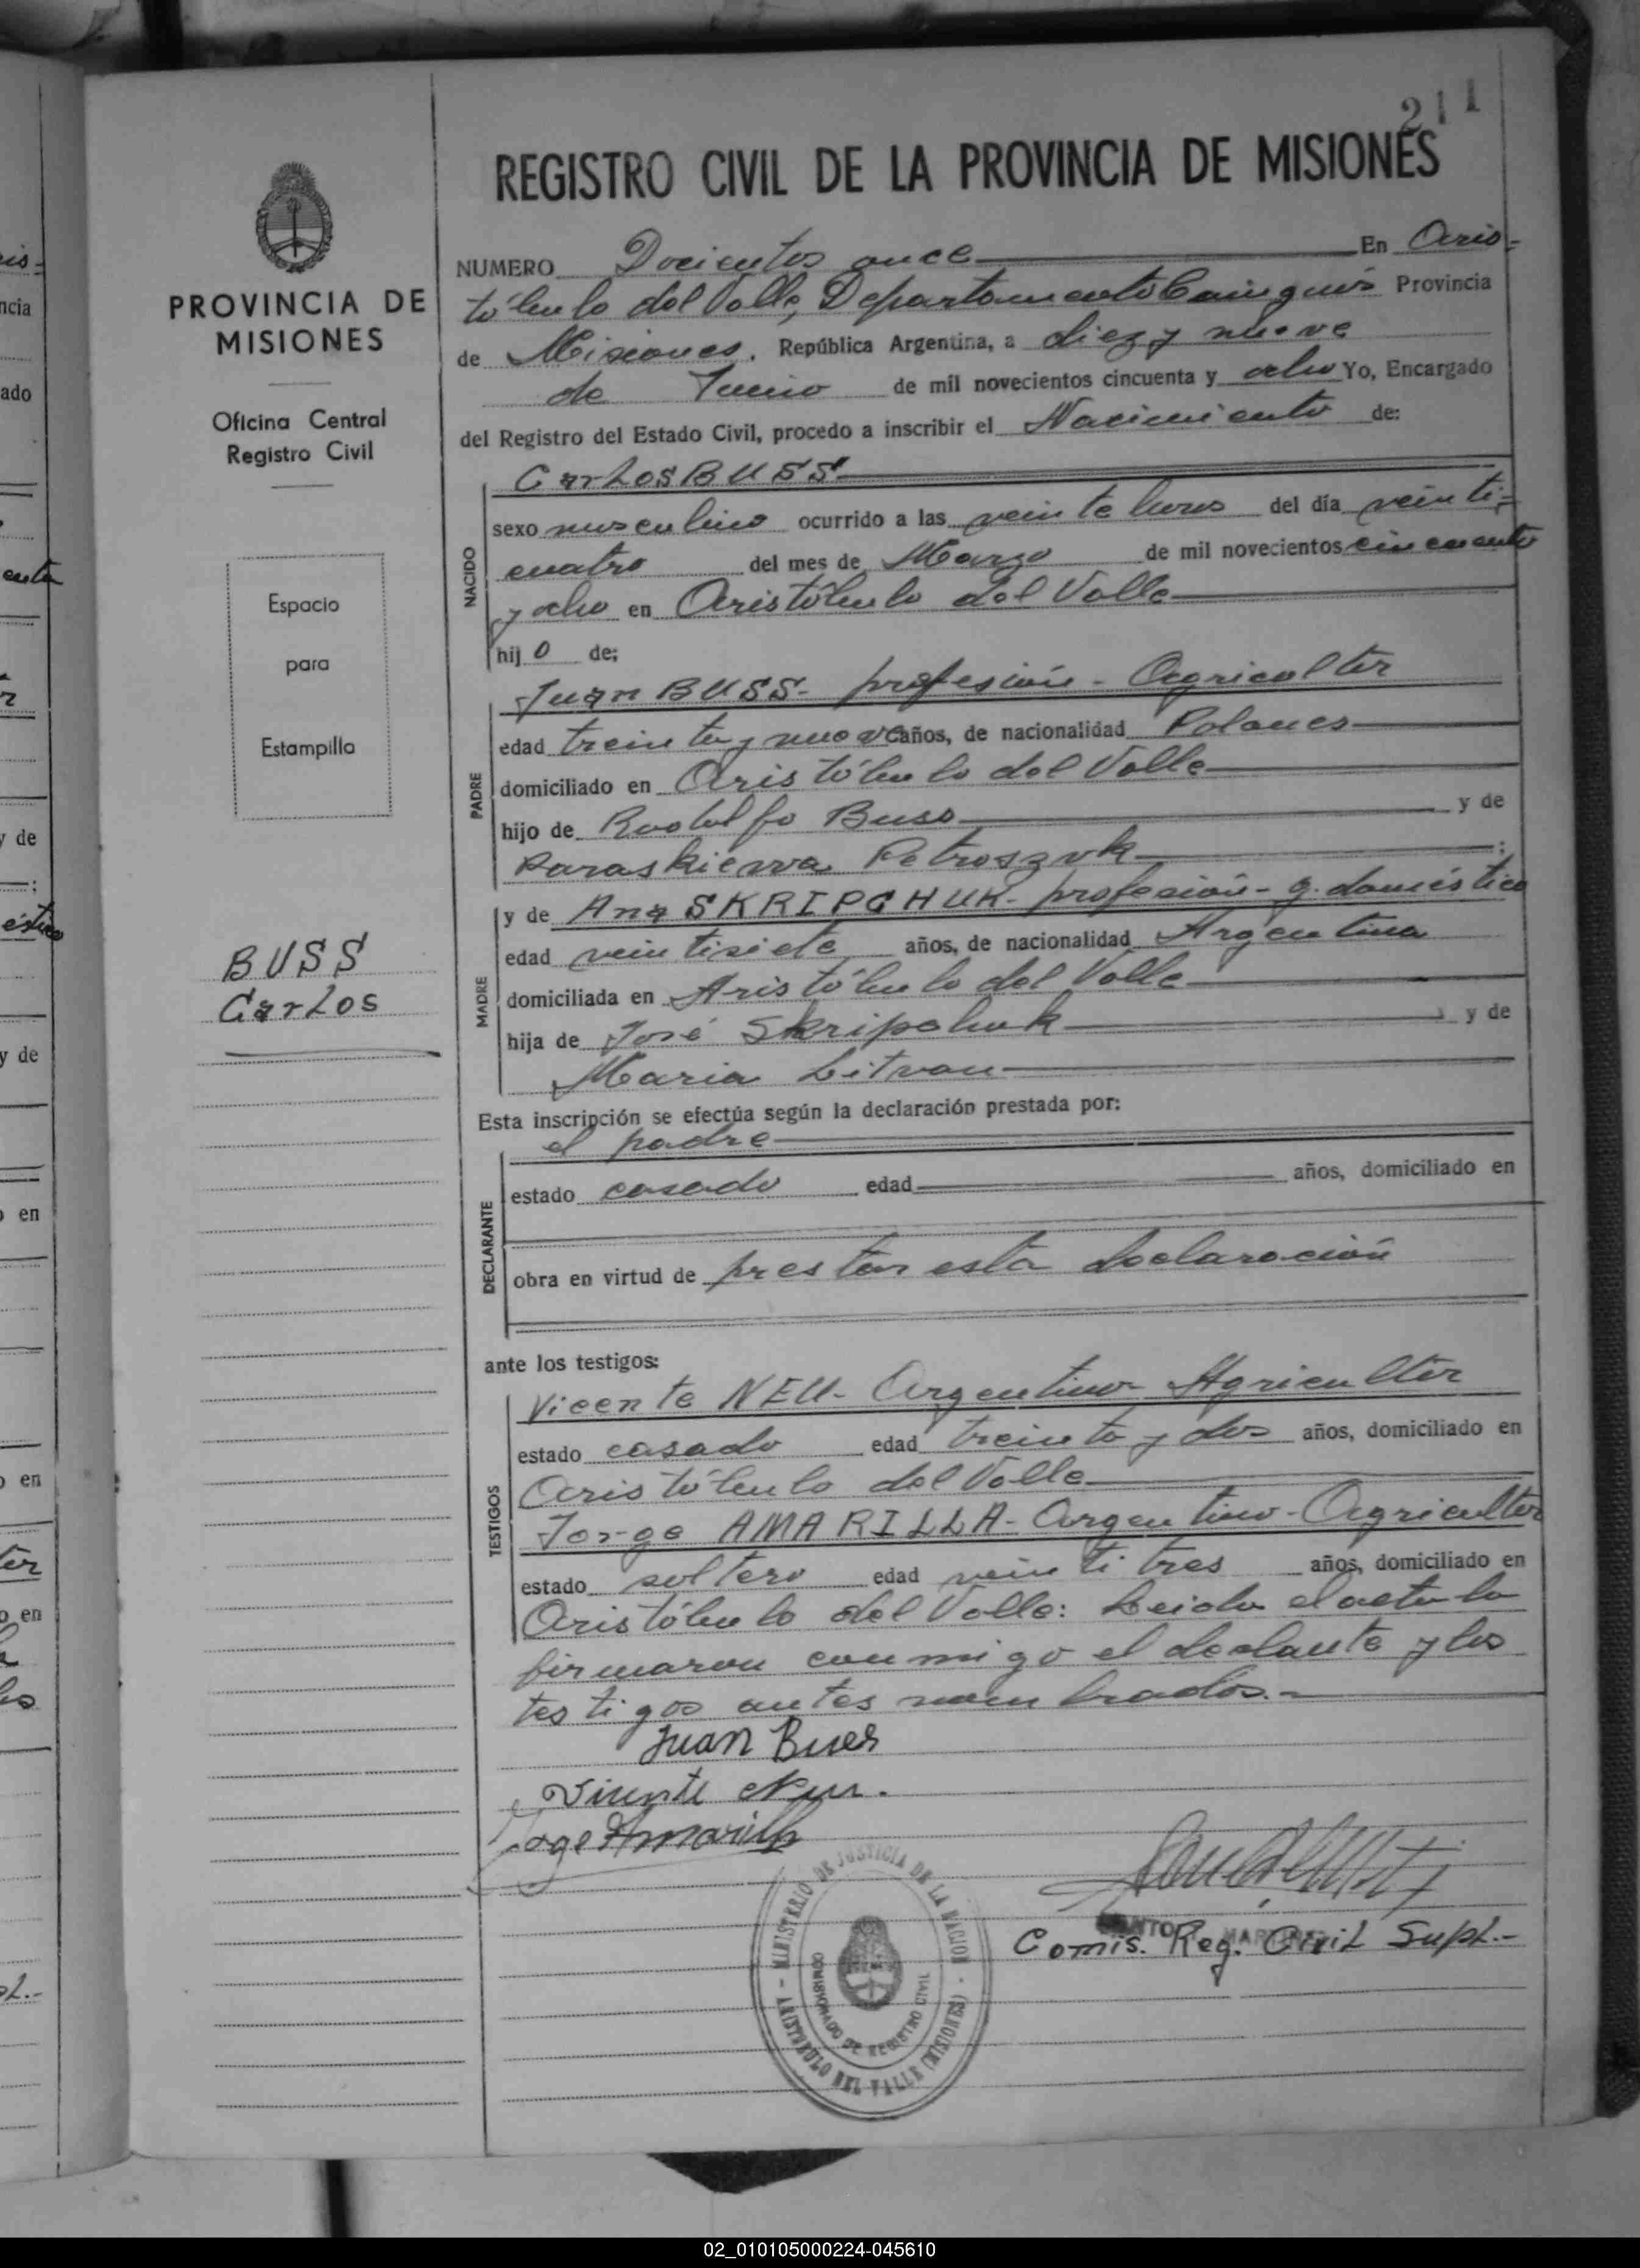 211
REGISTRO CIVIL DE LA PROVINCIA DE MISIONES
PROVINCIA DE
MISIONES
Oficina Central
Registro Civil
Espacio
para
Estampilla
BUSS
Carlos
NUMERO Docientos once En Aris-
tóbulo del Valle, Departamento Cainguás Provincia
de Misiones. República Argentina, a diez y nueve
de Junio de mil novecientos cincuenta y ocho Yo, Encargado
del Registro del Estado Civil, procedo a inscribir el Nacimiento de:
NACIDO
Carlos BUSS
sexo masculino ocurrido a las veinte horas del día veinti-
cuatro del mes de Marzo de mil novecientos cincuenta
y ocho en Aristóbulo del Valle
hijo de;
PADRE
Juan BUSS- profesión - Agricultor
edad treinta y nueve años, de nacionalidad Polaces
domiciliado en Aristóbulo del Valle
hijo de Rodolfo Buss y de
Paraskiewa Petroszuk ;
MADRE
y de Ana SKRIPCHUK- profesión - q. doméstico
edad veintisiete años, de nacionalidad Argentina
domiciliada en Aristóbulo del Valle
hija de José Skripchuk y de
Maria Litvan
Esta inscripción se efectúa según la declaración prestada por:
DECLARANTE
el padre
estado casado edad años, domiciliado en
obra en virtud de prestar esta declaración
ante los testigos:
TESTIGOS
Vicente NEU- Argentino- Agricultor
estado casado edad treinta y dos años, domiciliado en
Aristóbulo del Valle
Jorge AMARILLA- Argentino- Agricultor
estado soltero edad veintitres años, domiciliado en
Aristóbulo del Valle: Leida el acta la
firmaron conmigo el declante y los
testigos antes nombrados.-
Juan Buss
Vicente Neu.
Jorge Amarilla
Comis. Reg. Civil Supl.-
MINISTERIO DE JUSTICIA DE LA NACION
COMISIONADO DE REGISTRO CIVIL
ARISTOBULO DEL VALLE (MISIONES)
02_010105000224-045610